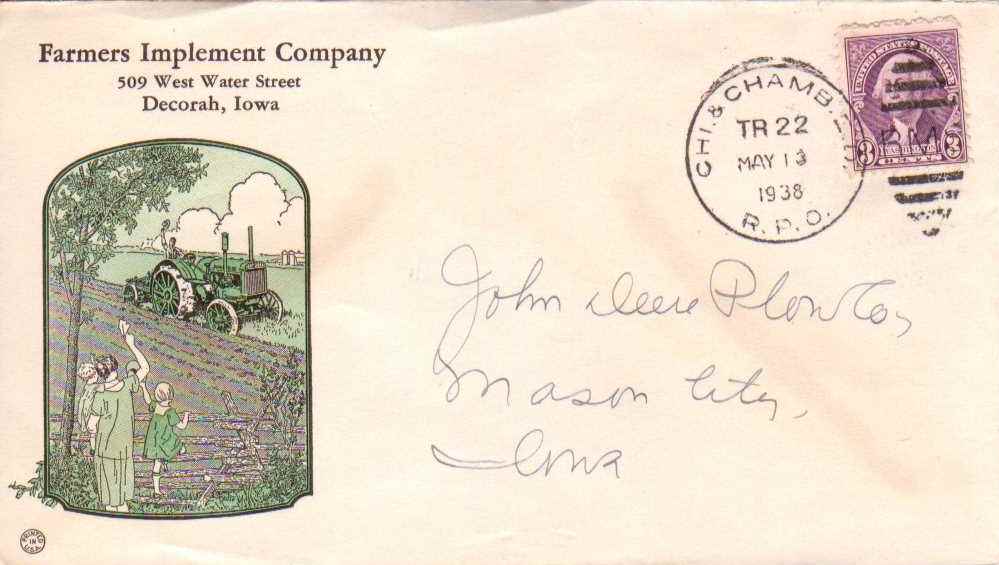 Farmers Implement Company
509 West Water Street
Decorah, Iowa
CHI. & CHAMB.
TR 22
MAY 13
1938
R.P.O.
UNITED STATES POSTAGE
3 WASHINGTON 3
P.M.
John Deere Plow Co,
Mason City,
Iowa
PRINTED
IN
U.S.A.